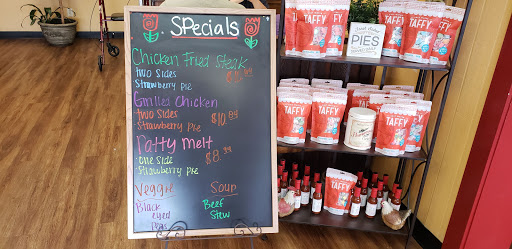 SPecials
Chicken Fried Steak
two Sides
Strawberry pie
Grilled Chicken
two Sides
$10.99
Strawberry Pie
Patty Melt
one Side
$8.99
Strawberry pie
Veggie
Soup
Black eyed Peas
Beef Stew
TAFFY
TAFFY
TAFFY
PIES
TAFFY
TAFFY
TAFFY
TAFFY